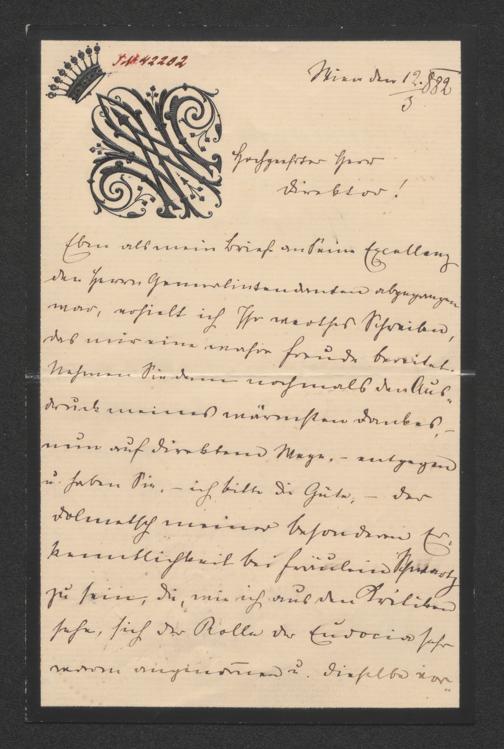 J.N. 42202
Wien den 12./3 882
Hochgeehrter Herr
Direktor!
Eben als mein Brief an Seine Excellenz
den Herrn Generalintendanten abgegangen
war, erhielt ich Ihr werthes Schreiben,
das mir eine wahre Freude bereitet.
Nehmen Sie denn nochmals den Aus-
druck meines wärmsten Dankes, –
nun auf direktem Wege, – entgegen
u. haben Sie, – ich bitte die Güte, – der
Dolmetsch meiner besonderen Er-
kenntlichkeit bei Fräulein Schwartz
zu sein, die, wie ich aus den Kritiken
sehe, sich der Rolle der Eudocia sehr
warm angenommen u. dieselbe vor-